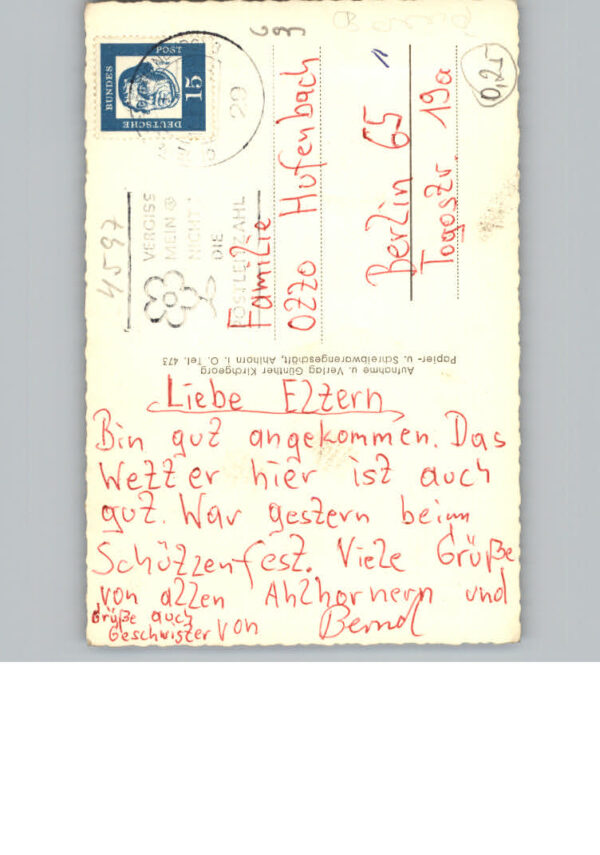 DEUTSCHE
BUNDES
POST
15
20
VERGISS
MEIN
NICHT
DIE
POSTLEITZAHL
4597
0,25
Familie
Otto Hufenbach
Berlin 65
Togostr. 19a
Aufnahme u. Verlag Günther Kirchgeorg
Papier- u. Schreibwarengeschäft, Ahlhorn i. O. Tel. 473
Liebe Eltern
Bin gut angekommen. Das
Wetter hier ist auch
gut. War gestern beim
Schützenfest. Viele Grüße
von allen Ahlhornern und
Grüße auch
Geschwister von Bernd